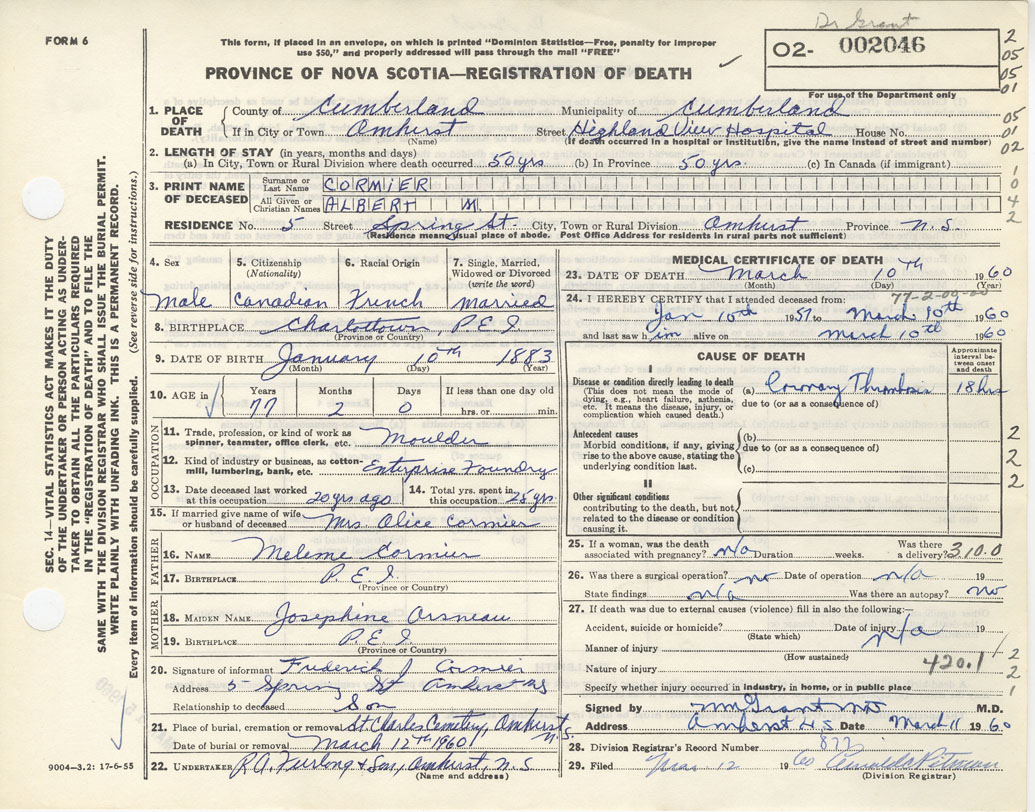 Dr Grant
FORM 6
This form, if placed in an envelope, on which is printed "Dominion Statistics—Free, penalty for improper
use $50," and properly addressed will pass through the mail "FREE"
O2- 002046
For use of the Department only
PROVINCE OF NOVA SCOTIA—REGISTRATION OF DEATH
2
05
05
01
05
01
02
1
0
4
2
1. PLACE OF DEATH County of Cumberland Municipality of Cumberland
If in City or Town Amherst Street Highland View Hospital House No.
(Name) (If death occurred in a hospital or institution, give the name instead of street and number)
2. LENGTH OF STAY (in years, months and days)
(a) In City, Town or Rural Division where death occurred 50 yrs (b) In Province 50 yrs. (c) In Canada (if immigrant)
3. PRINT NAME OF DECEASED Surname or Last Name CORMIER
All Given or Christian Names ALBERT M.
RESIDENCE No. 5 Street Spring St. City, Town or Rural Division Amherst Province N.S.
(Residence means usual place of abode. Post Office Address for residents in rural parts not sufficient)
4. Sex 5. Citizenship (Nationality) 6. Racial Origin 7. Single, Married, Widowed or Divorced (write the word)
Male Canadian French Married
8. BIRTHPLACE Charlottown, P.E.I.
(Province or Country)
9. DATE OF BIRTH January 10th 1883
(Month) (Day) (Year)
10. AGE in Years Months Days If less than one day old
77 2 0 hrs. or min.
OCCUPATION
11. Trade, profession, or kind of work as spinner, teamster, office clerk, etc. Moulder
12. Kind of industry or business, as cotton-mill, lumbering, bank, etc. Enterprise Foundry
13. Date deceased last worked at this occupation 20 yrs ago 14. Total yrs. spent in this occupation 25 yrs.
15. If married give name of wife or husband of deceased Mrs. Alice Cormier
FATHER
16. NAME Cormier
17. BIRTHPLACE P.E.I.
(Province or Country)
MOTHER
18. MAIDEN NAME Josephine Arsneau
19. BIRTHPLACE P.E.I.
(Province or Country)
20. Signature of informant Frederick J Cormier
Address 5 Spring St Amherst NS
Relationship to deceased Son
21. Place of burial, cremation or removal St Charles Cemetery, Amherst N.S.
Date of burial or removal March 12th 1960
22. UNDERTAKER R.A. Furlong & Son, Amherst, N.S.
(Name and address)
MEDICAL CERTIFICATE OF DEATH
23. DATE OF DEATH March 10th 1960
(Month) (Day) (Year)
77-2-00-00
24. I HEREBY CERTIFY that I attended deceased from:
Jan 10th 1957 to March 10th 1960
and last saw him alive on March 10th 1960
CAUSE OF DEATH
Approximate interval between onset and death
I
Disease or condition directly leading to death (a) Coronary Thrombosis 18 hrs
(This does not mean the mode of dying, e.g., heart failure, asthenia, etc. It means the disease, injury, or complication which caused death.)
due to (or as a consequence of)
Antecedent causes (b)
Morbid conditions, if any, giving rise to the above cause, stating the underlying condition last.
due to (or as a consequence of)
(c)
2
2
2
II
Other significant conditions
contributing to the death, but not related to the disease or condition causing it.
25. If a woman, was the death associated with pregnancy? n/a Duration weeks. Was there a delivery?
310.0
26. Was there a surgical operation? no Date of operation n/a 19
State findings n/a Was there an autopsy? no
27. If death was due to external causes (violence) fill in also the following:—
Accident, suicide or homicide? Date of injury n/a 19
(State which)
Manner of injury
(How sustained)
Nature of injury 420.1
2
2
1
Specify whether injury occurred in industry, in home, or in public place
Signed by M.D.
Address Amherst N.S. Date March 11 1960
28. Division Registrar's Record Number 877
29. Filed Mar 12 1960
(Division Registrar)
SEC. 14—VITAL STATISTICS ACT MAKES IT THE DUTY
OF THE UNDERTAKER OR PERSON ACTING AS UNDER-
TAKER TO OBTAIN ALL THE PARTICULARS REQUIRED
IN THE "REGISTRATION OF DEATH" AND TO FILE THE
SAME WITH THE DIVISION REGISTRAR WHO SHALL ISSUE THE BURIAL PERMIT.
WRITE PLAINLY WITH UNFADING INK. THIS IS A PERMANENT RECORD.
Every item of information should be carefully supplied. (See reverse side for instructions.)
9004-3.2: 17-6-55